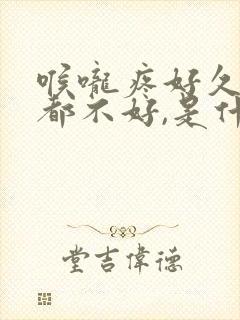 喉咙疼好久
都不好,是什
堂吉偉德